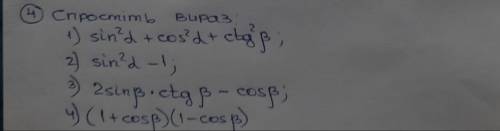 ④ Спростіть вираз
1) sin²α + cos²α + ctg²β;
2) sin²α - 1;
3) 2sinβ · ctgβ - cosβ;
4) (1 + cosβ)(1 - cosβ)